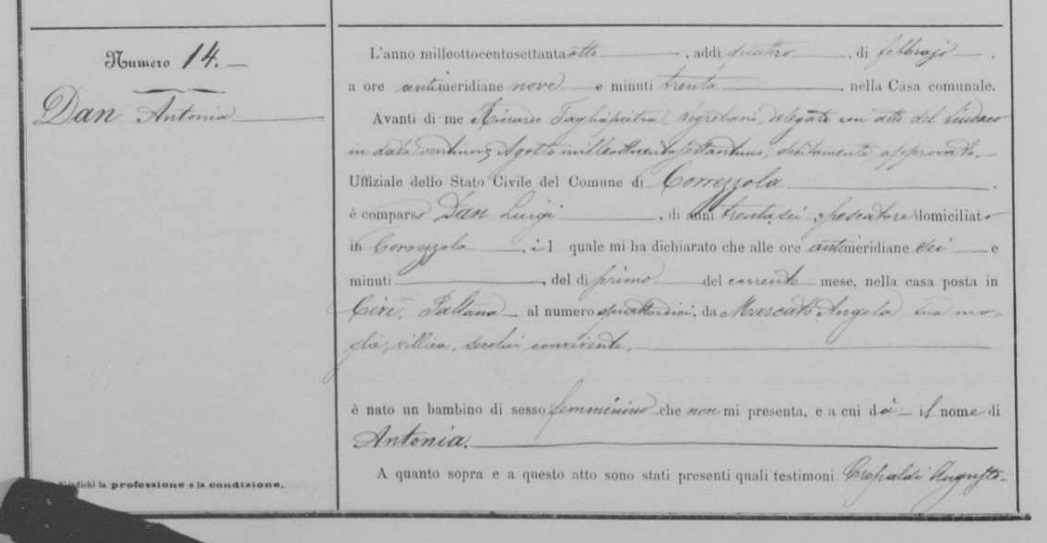 Numero 14.
Dan Antonia
L'anno milleottocentosettanta otto, addì quattro, di febbrajo.
a ore antimeridiane nove e minuti trenta, nella Casa comunale.
Avanti di me Riccardo Tagliapietra, Segretario, delegato con atto del Sindaco
in data ventinove Agosto milleottocentosettantuno, debitamente approvato.
Uffiziale dello Stato Civile del Comune di Correzzola.
è comparso Dan Luigi, di anni trentasei, pescatore domiciliato
in Correzzola, il quale mi ha dichiarato che alle ore antimeridiane sei e
minuti, del dì primo del corrente mese, nella casa posta in
Paltana al numero quattordici, da Marcato Angela sua mo-
glie, villica, secolui convivente,
è nato un bambino di sesso femminino che non mi presenta, e a cui dà il nome di
Antonia.
A quanto sopra e a questo atto sono stati presenti quali testimoni Crepaldi Augusto
indichi la professione e la condizione.